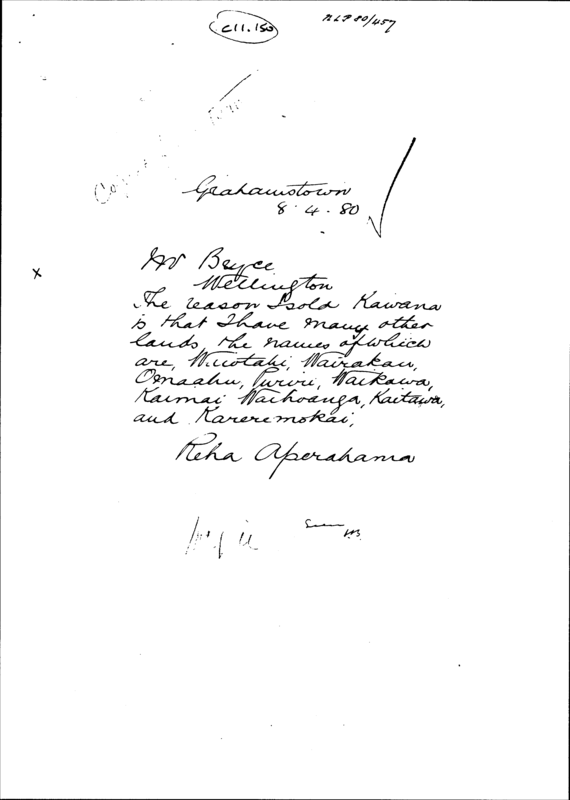 C11.150
NLP 80/457
Grahamstown
8.4.80
Mr Bryce
Wellington
The reason I sold Kawana
is that I have many other
lands, the names of which
are, Wairakau,
Omaahu, Puriri, Waikawa,
Kaimai Waihoanga, Kaitawa,
and Kareremokai,
Reha Aperahama